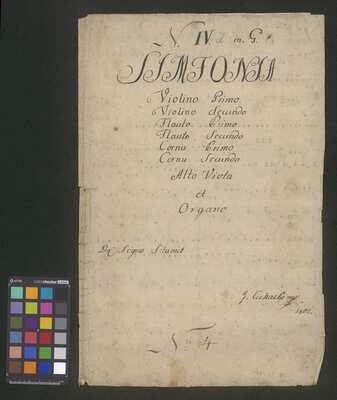 N. IV. in. G.
SIMFONIA
Violino Primo
Violino Secundo
Flauto Primo
Flauto Secundo
Cornu Primo
Cornu Secundo
Alto Viola
et
Organo
Del Signo Stamit
J.
No 54